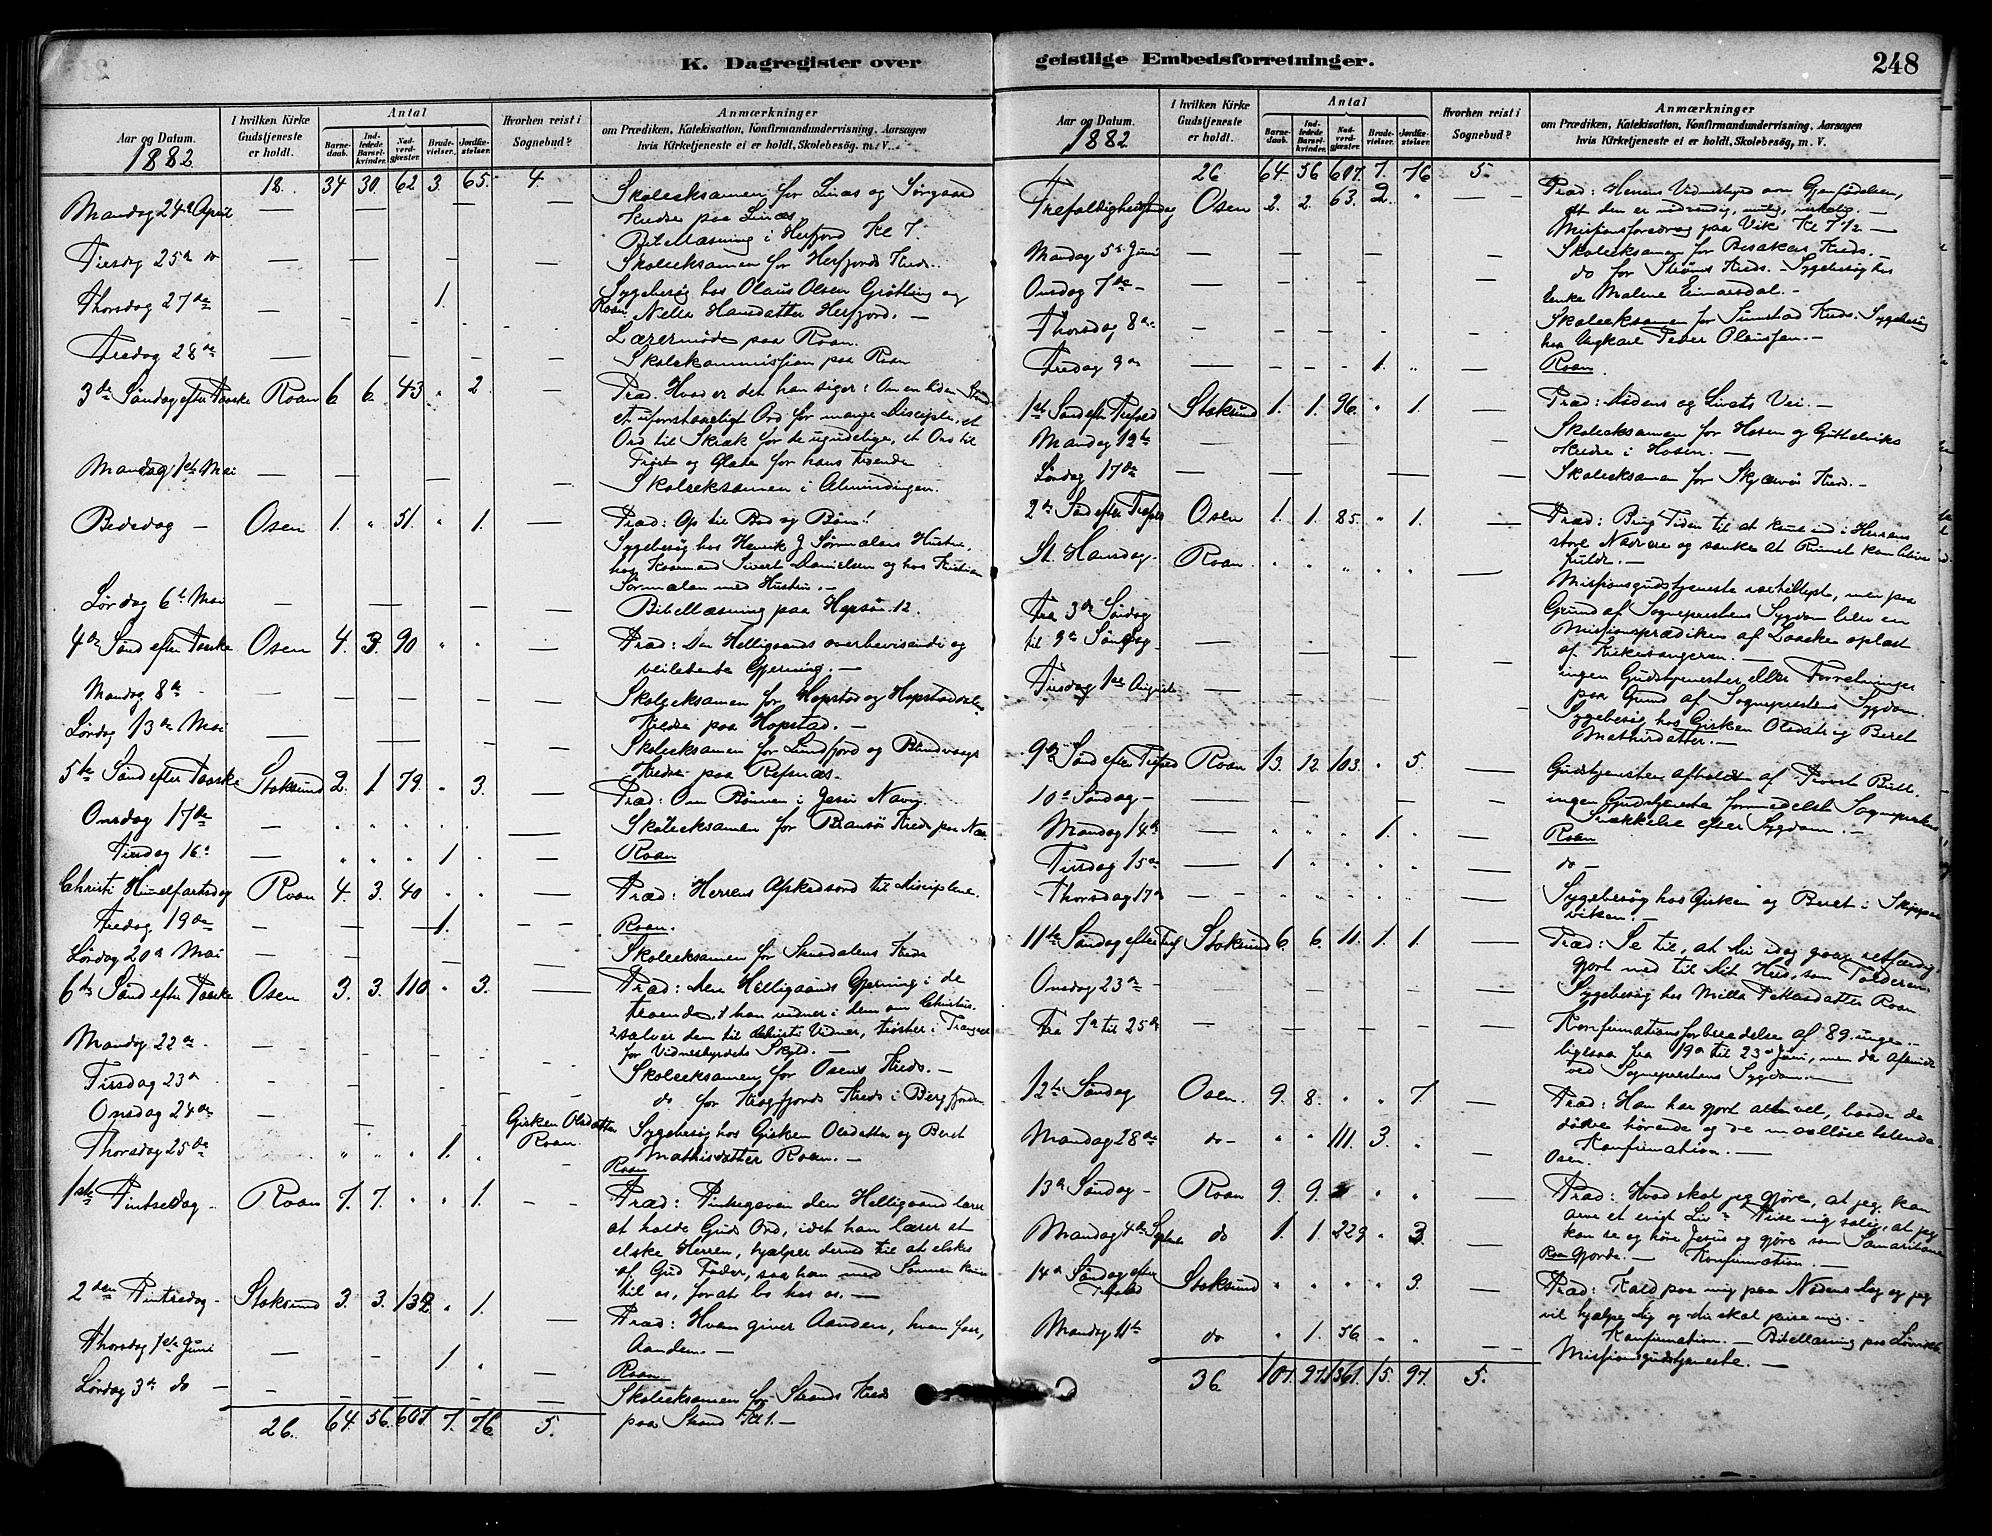 K. Dagregister over
geistlige Embedsforretninger.
248
Aar og Datum.
1882
I hvilken Kirke Gudstjeneste er holdt.
Antal
Barnedaab. Indledede Barselkvinder. Nadverdgjæster. Brudevielser. Jordfæstelser.
Hvorhen reist i Sognebud?
Anmærkninger
om Prædiken, Katekisation, Konfirmandundervisning, Aarsagen
hvis Kirketjeneste ei er holdt, Skolebesøg, m. V.
18. 34 30. 62 3. 65. 4.
Mandag 24de April — Skoleeksamen for Linæs og Sørgaard
Kredse paa Linæs
Bibellæsning i Herfjord Kl 7.
Tirsdag 25de do — Skoleeksamen for Herfjords Kreds.
Thorsdag 27de — 1. Sygebesøg hos Olaus Olsen Grøtting og
Roan. Nelle Hansdatter Herfjord. —
Lærermøde paa Roan.
Fredag 28de — Skolekommission paa Roan
3de Søndag efter Paaske Roan 6 6. 43 " 2. — Præd. Hvad er det han siger: Om en liden Stund
et uforstaaeligt Ord for mange Disciple, et
Ord til Skræk for de ugudelige, et Ord til
Trøst og Glæde for hans
Mandag 1ste Mai — Skoleeksamen i Almindingen.
Bededag — Osen 1. " 51. " 1. — Præd: Op til Bod og Bøn!
Sygebesøg hos Henrik J Sørmelans Hustru,
hos Kaarmand Sivert Danielsen og hos Kristian
Sørmelan med Hustru. —
Lørdag 6te Mai — Bibellæsning paa Hopsøen 12.
4de Sønd efter Paaske Osen 4. 3. 90 " " — Præd: Den Helligaands overbevisende og
veiledende Gjerning. —
Mandag 8de — Skoleeksamen for Hopstad og Hopstaddalen
Kredse paa Hopstad. —
Lørdag 13de Mai — Skoleeksamen for Sundfjord og
Kredse paa Refsnæs.
5te Sønd efter Paaske Stoksund 2. 1 79. " 3. — Præd: Om Bønnen i Jesu Navn.
Onsdag 17de — Skoleeksamen for Kreds paa
Tirsdag 16de — " " " 1. " — Roan
Christi Himmelfartsdag Roan 4. 3. 40 " " — Præd: Herrens Afskedsord til Disciplene.
Fredag 19de — 1. — Roan.
Lørdag 20de Mai — Skoleeksamen for Kreds
6te Sønd efter Paaske Osen 3. 3. 110 " 3. — Præd: Den Helligaands Gjerning i de
troende, 1 han vidner i dem om Christus.
2 salver dem til Christi Vidner, trøster i Trængsel
for Vidnesbyrdets Skyld. —
Mandag 22de — Skoleeksamen for Osens Kreds. —
Tirsdag 23de — do for Kreds i Bergfjorden
Onsdag 24de — Girken Olsdatter Roan. Sygebesøg hos Girken Olsdatter og Beret
Mathisdatter Roan. —
Thorsdag 25de " " " 1. " — Roan
1ste Pintsedag — Roan 7. 7. " " 1. — Præd: Pintsegaven den Helligaand lærer
at holde Guds Ord, idet han lærer at
elske Herren, hjælper derved til at elskes
af Gud Fader, saa han med Sønnen kan
til os, for at bo hos os. —
2den Pintsedag — Stoksund 3. 3. 132 " 1. — Præd: Hvem giver Aanden, hvem faar
Aanden. —
Thorsdag 1ste Juni — 1 " Roan
Lørdag 3de do — Skoleeksamen for Strands Kreds
paa Strand Kl 1. —
26. 64. 56. 607. 7. 76. 5.
Aar og Datum.
1882
I hvilken Kirke Gudstjeneste er holdt.
Antal
Barnedaab. Indledede Barselkvinder. Nadverdgjæster. Brudevielser. Jordfæstelser.
Hvorhen reist i Sognebud?
Anmærkninger
om Prædiken, Katekisation, Konfirmandundervisning, Aarsagen
hvis Kirketjeneste ei er holdt, Skolebesøg, m. V.
26 64 56 607. 7. 76 5.
Trefoldighedssøndag Osen 2. 2. 63. 2. " — Præd: Herrens Vidnesbyrd om Gjenfødelsen,
at den er nødvendig, mulig, virkelig. —
Missionsforedrag paa Vik Kl 7 1/2 —
Mandag 5te Juni — Skoleeksamen for Besakers Kreds. —
Onsdag 7de — do for Strøms Kreds. — Sygebesøg hos
Enke Malene Einarsdal. —
Thorsdag 8de — Skoleeksamen for Sumstad Kreds. Sygebesøg
hos Ungkarl Peder Olaussen. —
Fredag 9de — 1. " Roan.
1ste Sønd efter Trefold Stoksund 1. 1. 96. " 1. — Præd: Dødens og Livets Vei. —
Mandag 12te — Skoleeksamen for Hosen og Gittelviks
Kredse i Hosen. —
Lørdag 17de — Skoleeksamen for Skjærvø Kred. —
2de Sønd efter Trefold Osen 1. 1. 85. " 1. — Præd: Brug Tiden til at komme ind i Herrens
store Nadvere og sanke at Rummet kan blive
fuldt. —
St. Hansdag. Roan. " " " " " — Missionsgudstjeneste men paa
Grund af Sognepræstens Sygdom blev en
Missionsprædiken af oplæst
af Kirkesangeren. —
Fra 3de Søndag
til 9de Søndag — ingen Gudstjenester eller Forretninger
paa Grund af Sognepræstens Sygdom.
Tirsdag 1ste August — Sygebesøg hos Girken Olsdatr og Beret
Mathisdatter. —
9de Sønd efter Trefold Roan 13. 12. 103. " 5. — Gudstjenesten afholdt af Provst Bull.
10de Søndag — ingen Gudstjeneste formedelst Sognepræstens
Svækkelse efter Sygdom. —
Mandag 14de — " " " 1. " — Roan
Tirsdag 15de — 1 " " " " — do —
Thorsdag 17de — Sygebesøg hos Girken og Beret i Skjæper
viken. —
11te Søndag efter Tref Stoksund 6. 6. 11. 1. 1. — Præd: Se til, at du idag gaar retfærdig
gjort ned til dit Hus, som Tolderen.
Onsdag 23de — Sygebesøg hos Milla Pettersdatter Roan
Fra 7de til 25de — Konfirmationsforberedelse af 89 unge.
ligesaa fra 19de til 23de Juni, men da afbrudt
ved Sognepræstens Sygdom. —
12te Søndag Osen. 9. 8. " " 7. — Præd: Han har gjort alt vel, baade de
døve hørende og de maalløse talende
Mandag 28de do — " " 111. 3. " Osen. Konfirmation. —
13de Søndag — Roan 9. 9. " " — Præd: Hvad skal jeg gjøre, at jeg kan
arve et evigt Liv? Prise mig salig, at jeg
kan se og høre Jesus og gjøre som Samaritanen
gjorde. —
Mandag 4de Septbr do 1. 1. 229 " 3. — Roan Konfirmation. —
14de Søndag efter Trefold Stoksund " " " " 3. — Præd: Kald paa mig paa Nødens Dag og jeg
vil hjælpe dig og du skal prise mig. —
Mandag 11te do " 1. 56 " " — Konfirmation. — Bibellæsning paa
Missionsgudstjeneste. —
36. 107. 97. 1361. 15. 97. 5.